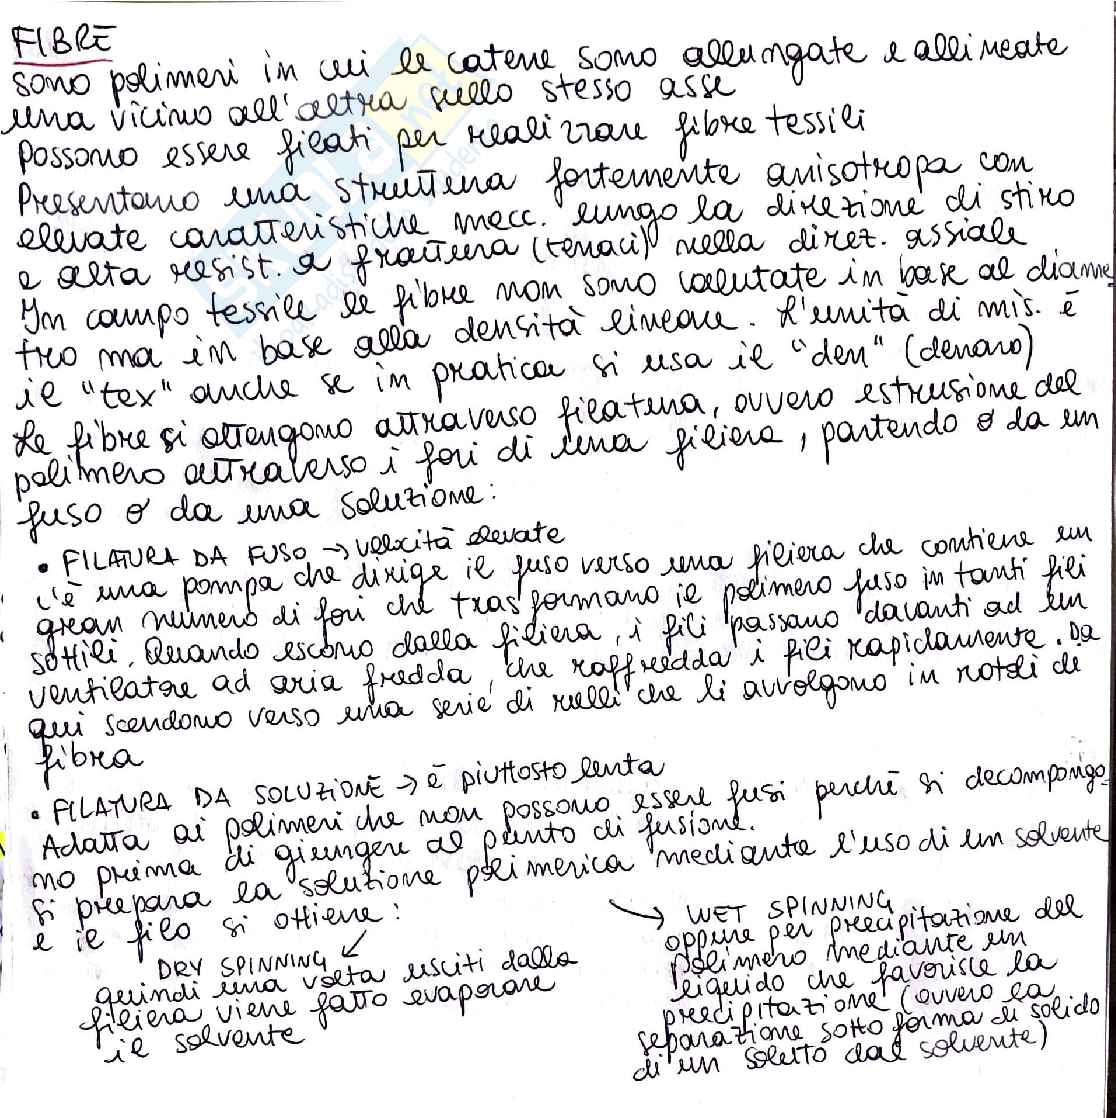 FIBRE
sono polimeri in cui le catene sono allungate e allineate
una vicino all'altra sullo stesso asse
Possono essere filati per realizzare fibre tessili
Presentano una struttura fortemente anisotropa con
elevate caratteristiche mecc. lungo la direzione di stiro
e alta resist. a frattura (tenaci) nella direz. assiale
In campo tessile le fibre non sono valutate in base al diame-
tro ma in base alla densità lineare. L'unità di mis. è
il "tex" anche se in pratica si usa il "den" (denaro)
Le fibre si ottengono attraverso filatura, ovvero estrusione del
polimero attraverso i fori di una filiera, partendo o da un
fuso o da una soluzione:
• FILATURA DA FUSO → velocità elevate
c'è una pompa che dirige il fuso verso una filiera che contiene un
gran numero di fori che trasformano il polimero fuso in tanti fili
sottili. Quando escono dalla filiera, i fili passano davanti ad un
ventilatore ad aria fredda, che raffredda i fili rapidamente. Da
qui scendono verso una serie di rulli che li avvolgono in rotoli di
fibra
• FILATURA DA SOLUZIONE → è piuttosto lenta
Adatta ai polimeri che non possono essere fusi perché si decompongo-
no prima di giungere al punto di fusione.
si prepara la soluzione polimerica mediante l'uso di un solvente
e il filo si ottiene:
DRY SPINNING
quindi una volta usciti dalla
filiera viene fatto evaporare
il solvente
→ WET SPINNING
oppure per precipitazione del
polimero mediante un
liquido che favorisce la
precipitazione (ovvero la
separazione sotto forma di solido
di un soluto dal solvente)